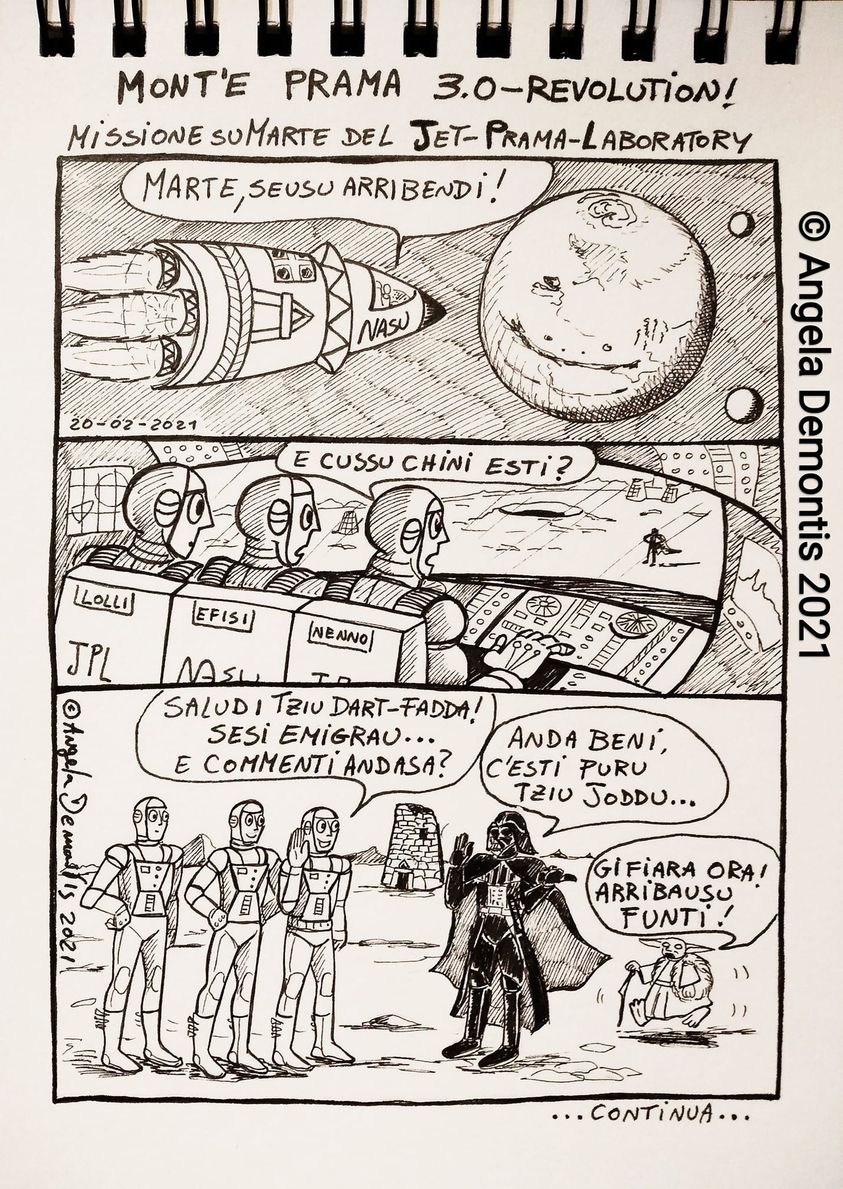 MONT'E PRAMA 3.0-REVOLUTION!
MISSIONE SU MARTE DEL JET-PRAMA-LABORATORY
MARTE, SEUSU ARRIBENDI!
NASU
20-02-2021
E CUSSU CHINI ESTI?
LOLLI
JPL
EFISI
NASU
NENNO
SALUDI TZIU DART-FADDA!
SESI EMIGRAU...
E COMMENTI ANDASA?
ANDA BENI,
C'ESTI PURU
TZIU JODDU...
GIFIARA ORA!
ARRIBAUSU
FUNTI!
© Angela Demontis 2021
...CONTINUA...
© Angela Demontis 2021